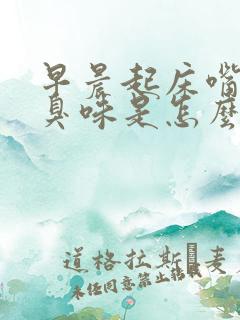 早晨起床嘴
臭味是怎麼
道格拉斯·麦
未经同意禁止转载